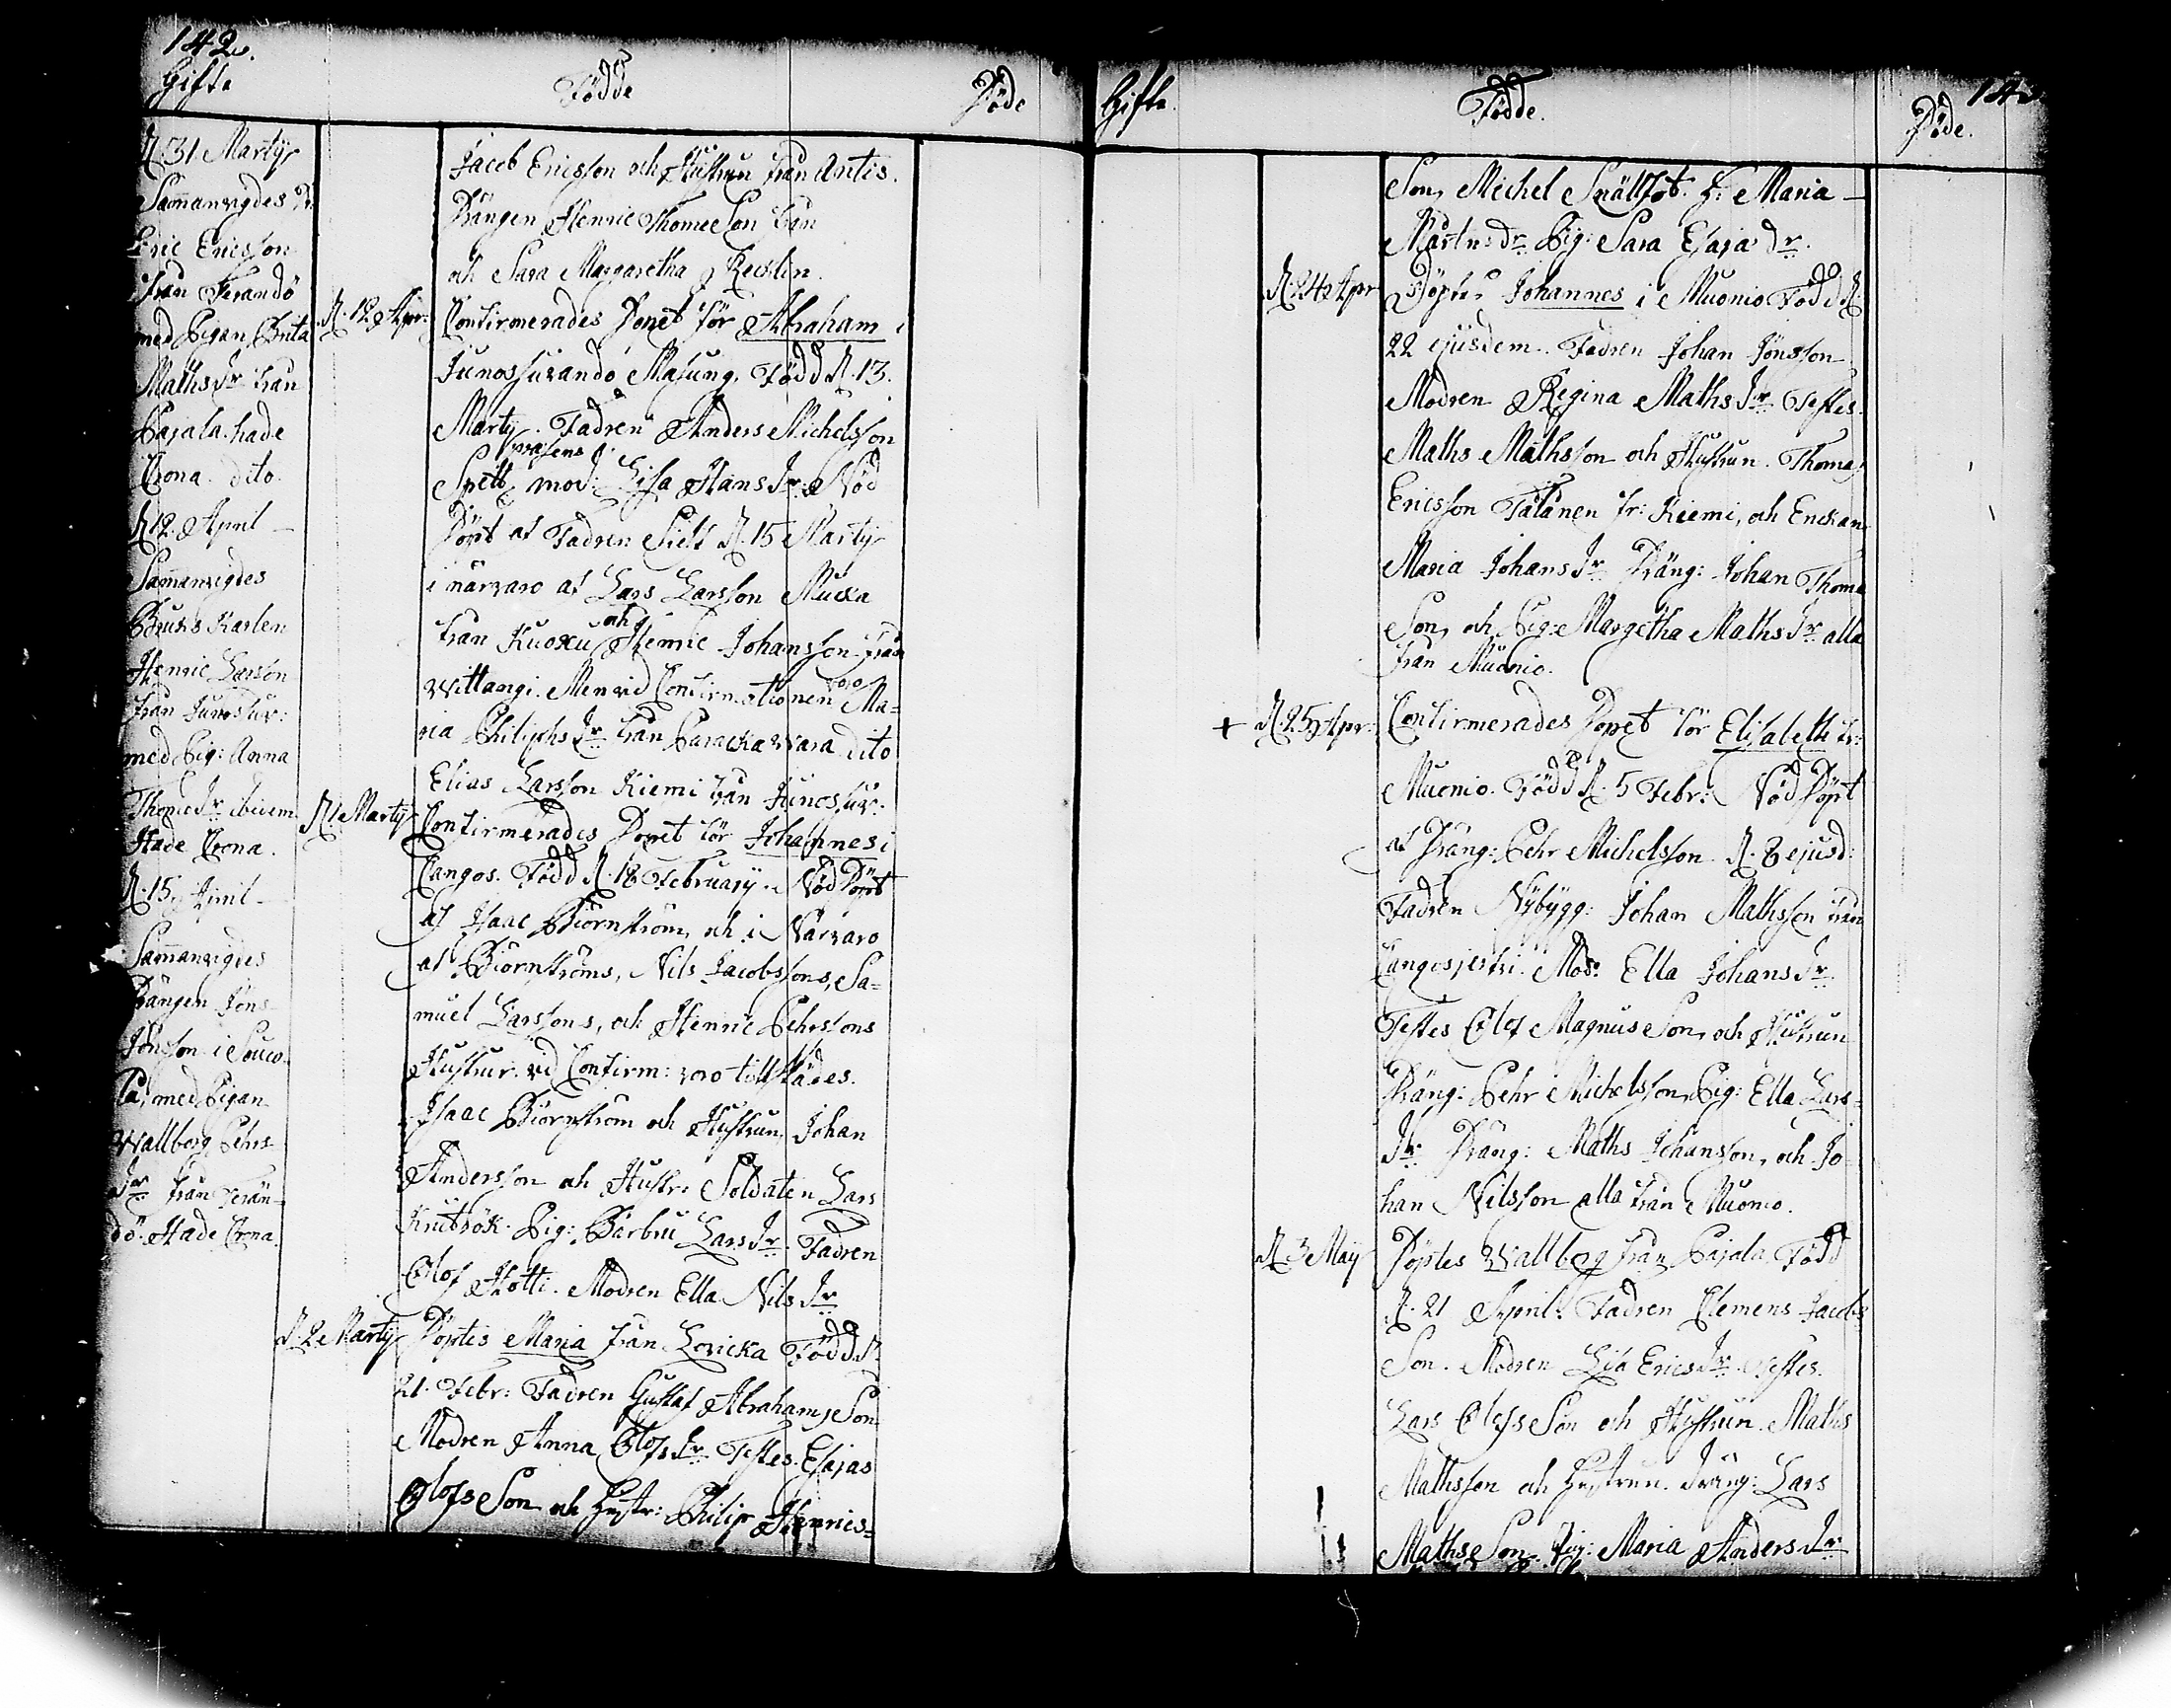 142.
Gifte
Födde
Döde
D. 31 Martij
Sam̄anvigdes Dr.
Eric Ericsson
från Terandö
med Pigan Brita
Maths Dr. från
Pajala. hade
Crona. dito.
D. 12. April
Sam̄anvigdes
Bruks Karlen
Henric Larsson
från Junosuv:
med Pig: Anna
Thome Dr. ibidem
Hade Crona.
D. 15. April
Sam̄anvigdes
Drängen Jöns
Jönsson i Souo-
la, med Pigan
Wallborg Pehrs
Dr. från Terän-
dö. Hade Crona.
Jacob Ericsson och Hustrun från Antis.
Drängen Henric Thome Son från
och Sara Margaretha
D. 12. Apr: Confirmerades Dopet för Abraham i
Junossuando Masung. Född D. 13.
Martij. Fadren Anders Michelsson
præsens
Spett, mod: Lisa Hans Dr. Nöd
Döpt af Fadren Sielf D. 15 Martij
i närvaro af Lars Larsson Mucka
från Kuoxu och Henric Johansson från
Wittangi. Men vid Confirmationen voro Ma-
ria Philiphs Dr. från Parackawara dito
Elias Larsson Kiemi från Junossuv:
D. 1 Martij Confirmerades Dopet för Johannes i
Cangos. Född D. 18 Februarij. Nöd Döpt
af Isaac Björnström, och i Närvaro
af Björnströms, Nils Jacobssons, Sa-
muel Larssons, och Henric Pehrssons
Hustrur. vid Confirm: voro tillstädes.
Isaac Björnström och Hustrun, Johan
Andersson och Hustr: Soldaten Lars
Pig: Barbru Lars Dr. Fadren
Olof Hotti. Modren Ella Nils Dr.
D. 2 Martij Döptes Maria från Lovicka Född D.
21. Febr: Fadren Gustaf Abrahams Son
Modren Anna Olofs Dr. Testes. Esajas
Olofs Son och Hustr: Philip Henrics-
Gifte.
Födde.
Döde.
Son, Michel Snällfot. H: Maria
Mårtns Dr. Pig: Sara Esajæ Dr.
D. 24 Apr Döptes Johannes i Muonio. Född D.
22 ejusdem. Fadren Johan Jönsson
Modren Regina Maths Dr. Testes.
Maths Mathsson och Hustrun. Thomas
Ericsson Talanen fr: Kiemi, och Enckan
Maria Johans Dr. Dräng: Johan Thome
Son, och Pig: Margetha Maths Dr. alla
från Muonio.
+ D. 25 Apr: Confirmerades Dopet för Elisabeth fr:
Muonio. Född D. 5 Febr: Nöd Döpt
af Dräng: Pehr Michelsson. D. 8 ejusd:
Fadren Nybygg: Johan Mathsson från
Cangosjerfvi. Mod: Ella Johans Dr.
Testes Olof Magnus Son, och Hustrun
Dräng: Pehr Michelsson, Pig: Ella Lars-
Dr. Dräng: Maths Johansson, och Jo-
han Nilsson alla från Muonio.
D. 3 Maij Döptes Wallborg från Pajala Född
D. 21 April. Fadren Clemens Jacobs
Son. Modren Lisa Erics Dr. Testes.
Lars Olofs Son och Hustrun. Maths
Mathsson och Hustrun. Dräng: Lars
Maths Son. Pig: Maria Anders Dr.